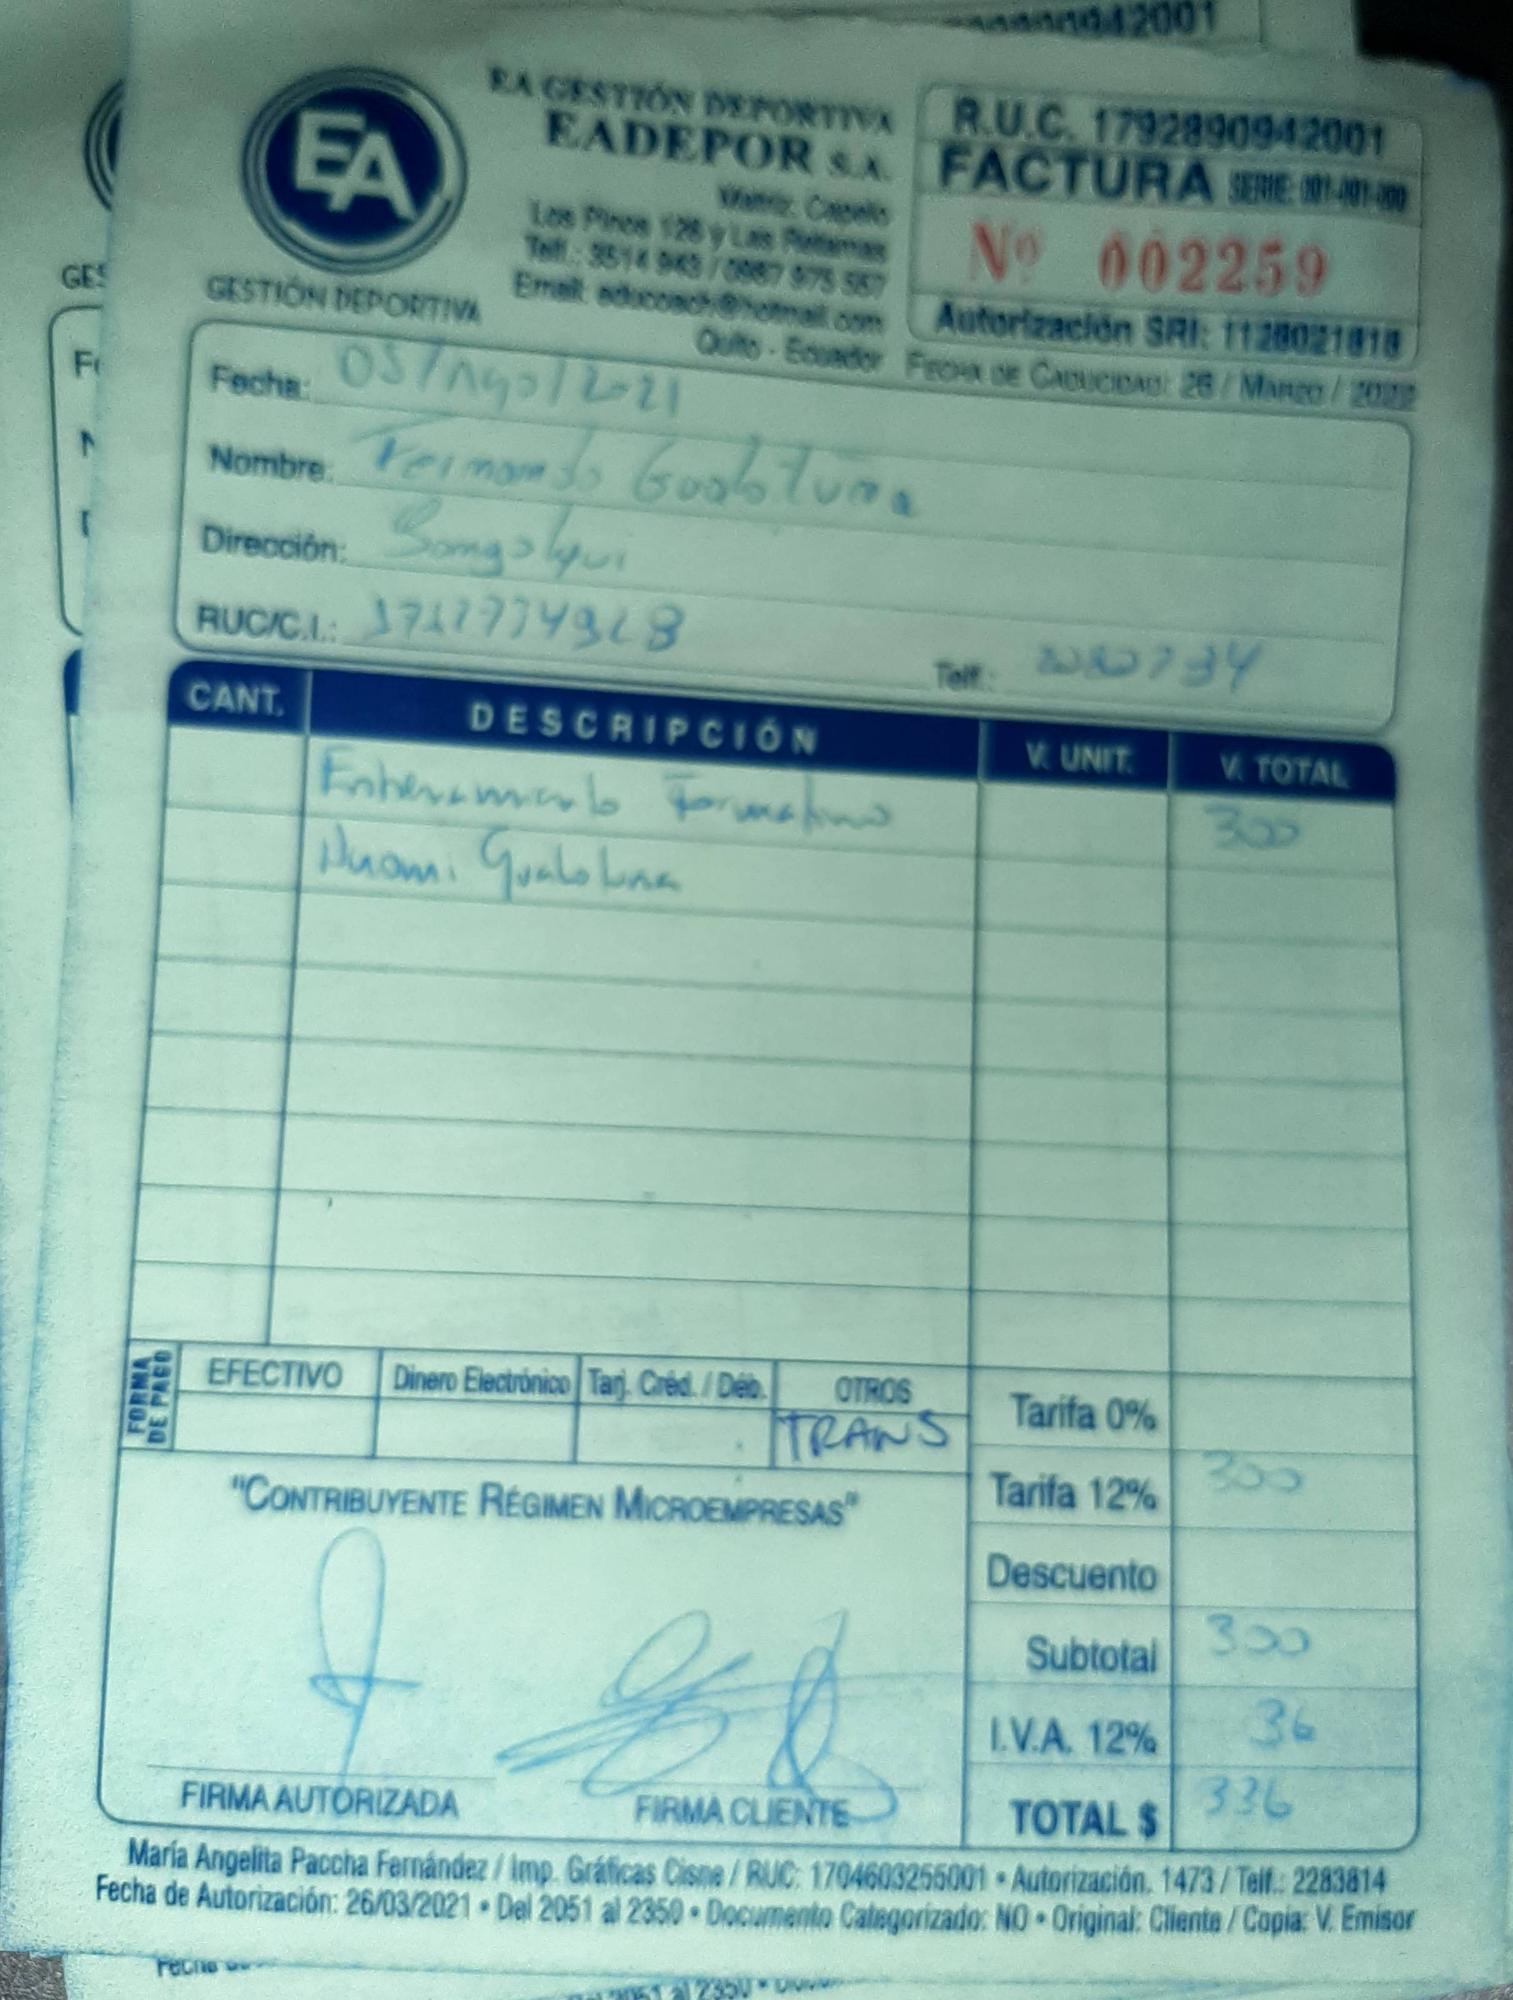 EA
GESTIÓN DEPORTIVA
EA GESTIÓN DEPORTIVA
EADEPOR S.A.
Matriz: Capelo
Los Pinos 126 y Las Retamas
Telf.: 3514 943 / 0987 975 557
Email: educoach@hotmail.com
Quito - Ecuador
R.U.C. 1792890942001
FACTURA SERIE: 001-001-000
Nº 002259
Autorización SRI: 1128021818
FECHA DE CADUCIDAD: 26 / MARZO / 2022
Fecha: 05/Ago/2021
Nombre: Fernando Gualotuña
Dirección: Sangolqui
RUC/C.I.:
Telf.:
CANT. DESCRIPCIÓN V. UNIT. V. TOTAL
Entrenamiento Formativo 300
Gualotuna
FORMA DE PAGO
EFECTIVO Dinero Electrónico Tarj. Créd. / Déb. OTROS
TRANS
Tarifa 0%
Tarifa 12% 300
"CONTRIBUYENTE RÉGIMEN MICROEMPRESAS"
Descuento
Subtotal 300
I.V.A. 12% 36
TOTAL $ 336
FIRMA AUTORIZADA FIRMA CLIENTE
María Angelita Paccha Fernández / Imp. Gráficas Cisne / RUC: 1704603255001 • Autorización. 1473 / Telf.: 2283814
Fecha de Autorización: 26/03/2021 • Del 2051 al 2350 • Documento Categorizado: NO • Original: Cliente / Copia: V. Emisor